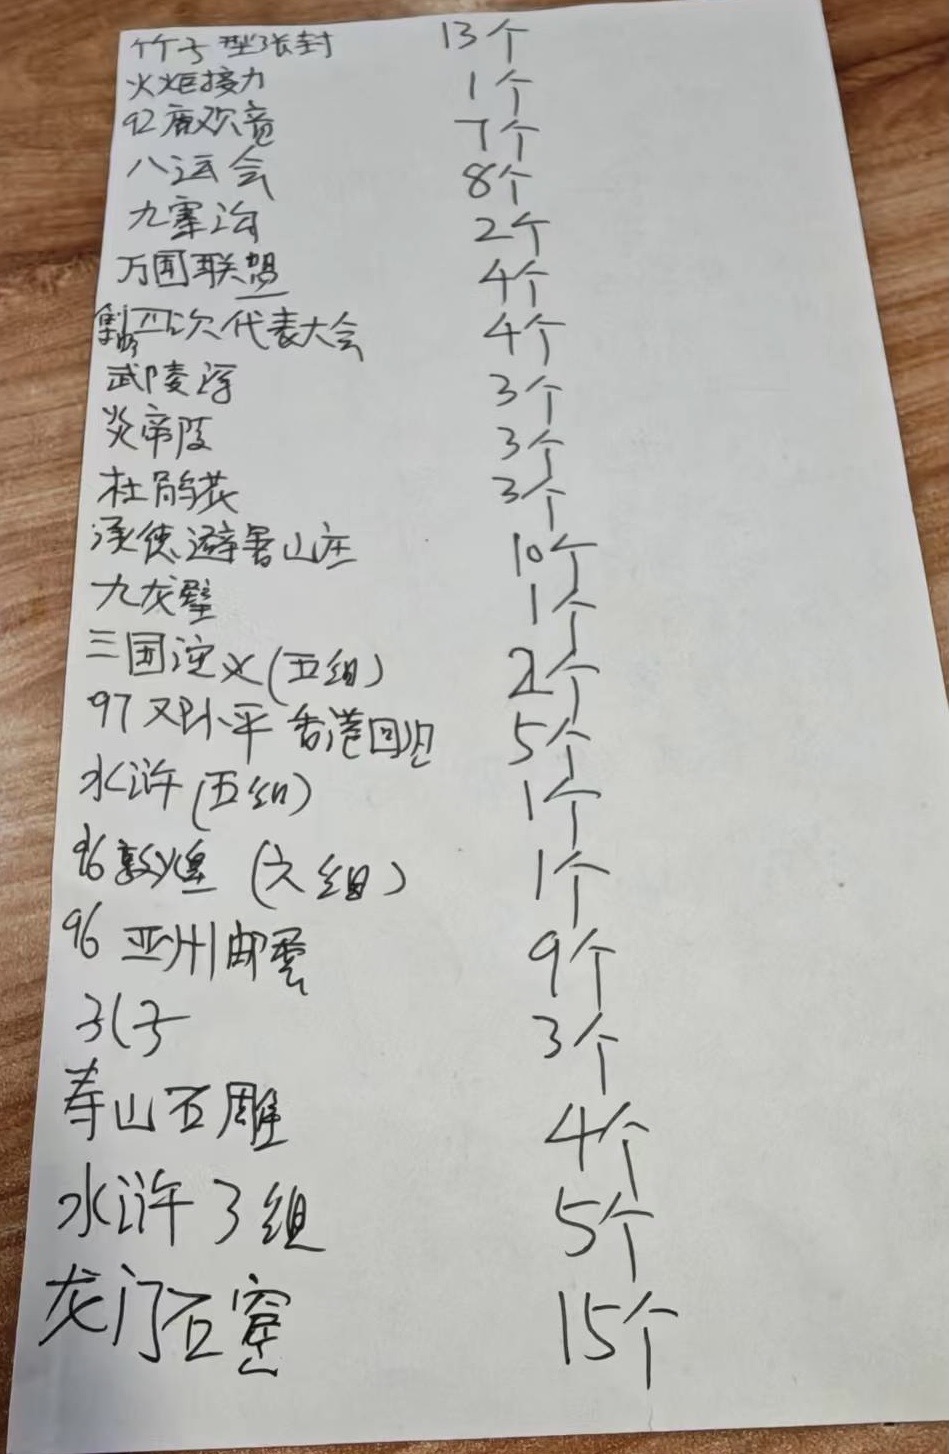 竹子型张封 13个
火炬接力 1个
92鹿欢音 7个
八运会 8个
九寨沟 2个
万国联盟 4个
四次代表大会 4个
武陵源 3个
炎帝陵 3个
杜鹃花 3个
承德避暑山庄 10个
九龙壁 1个
三国演义(五组) 2个
97邓小平香港回归 5个
水浒(五组) 1个
96敦煌(六组) 1个
96亚洲邮票 9个
孔子 3个
寿山石雕 4个
水浒3组 5个
龙门石窟 15个